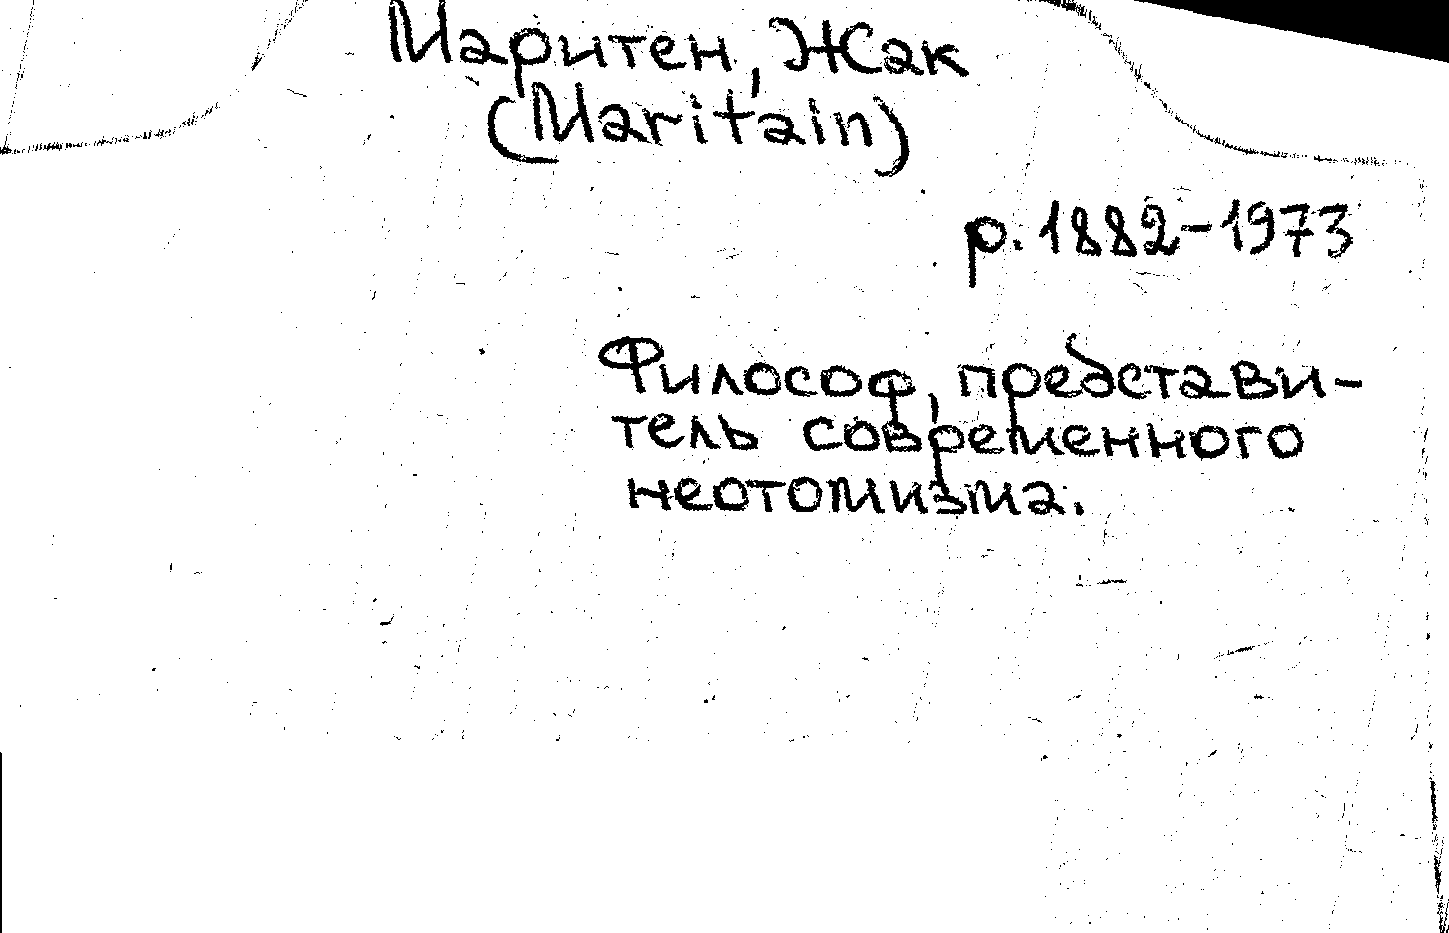 Маритен, Жак
(Maritain)
р. 1882-1973
Философ, представи-
тель современного
неотомизма.